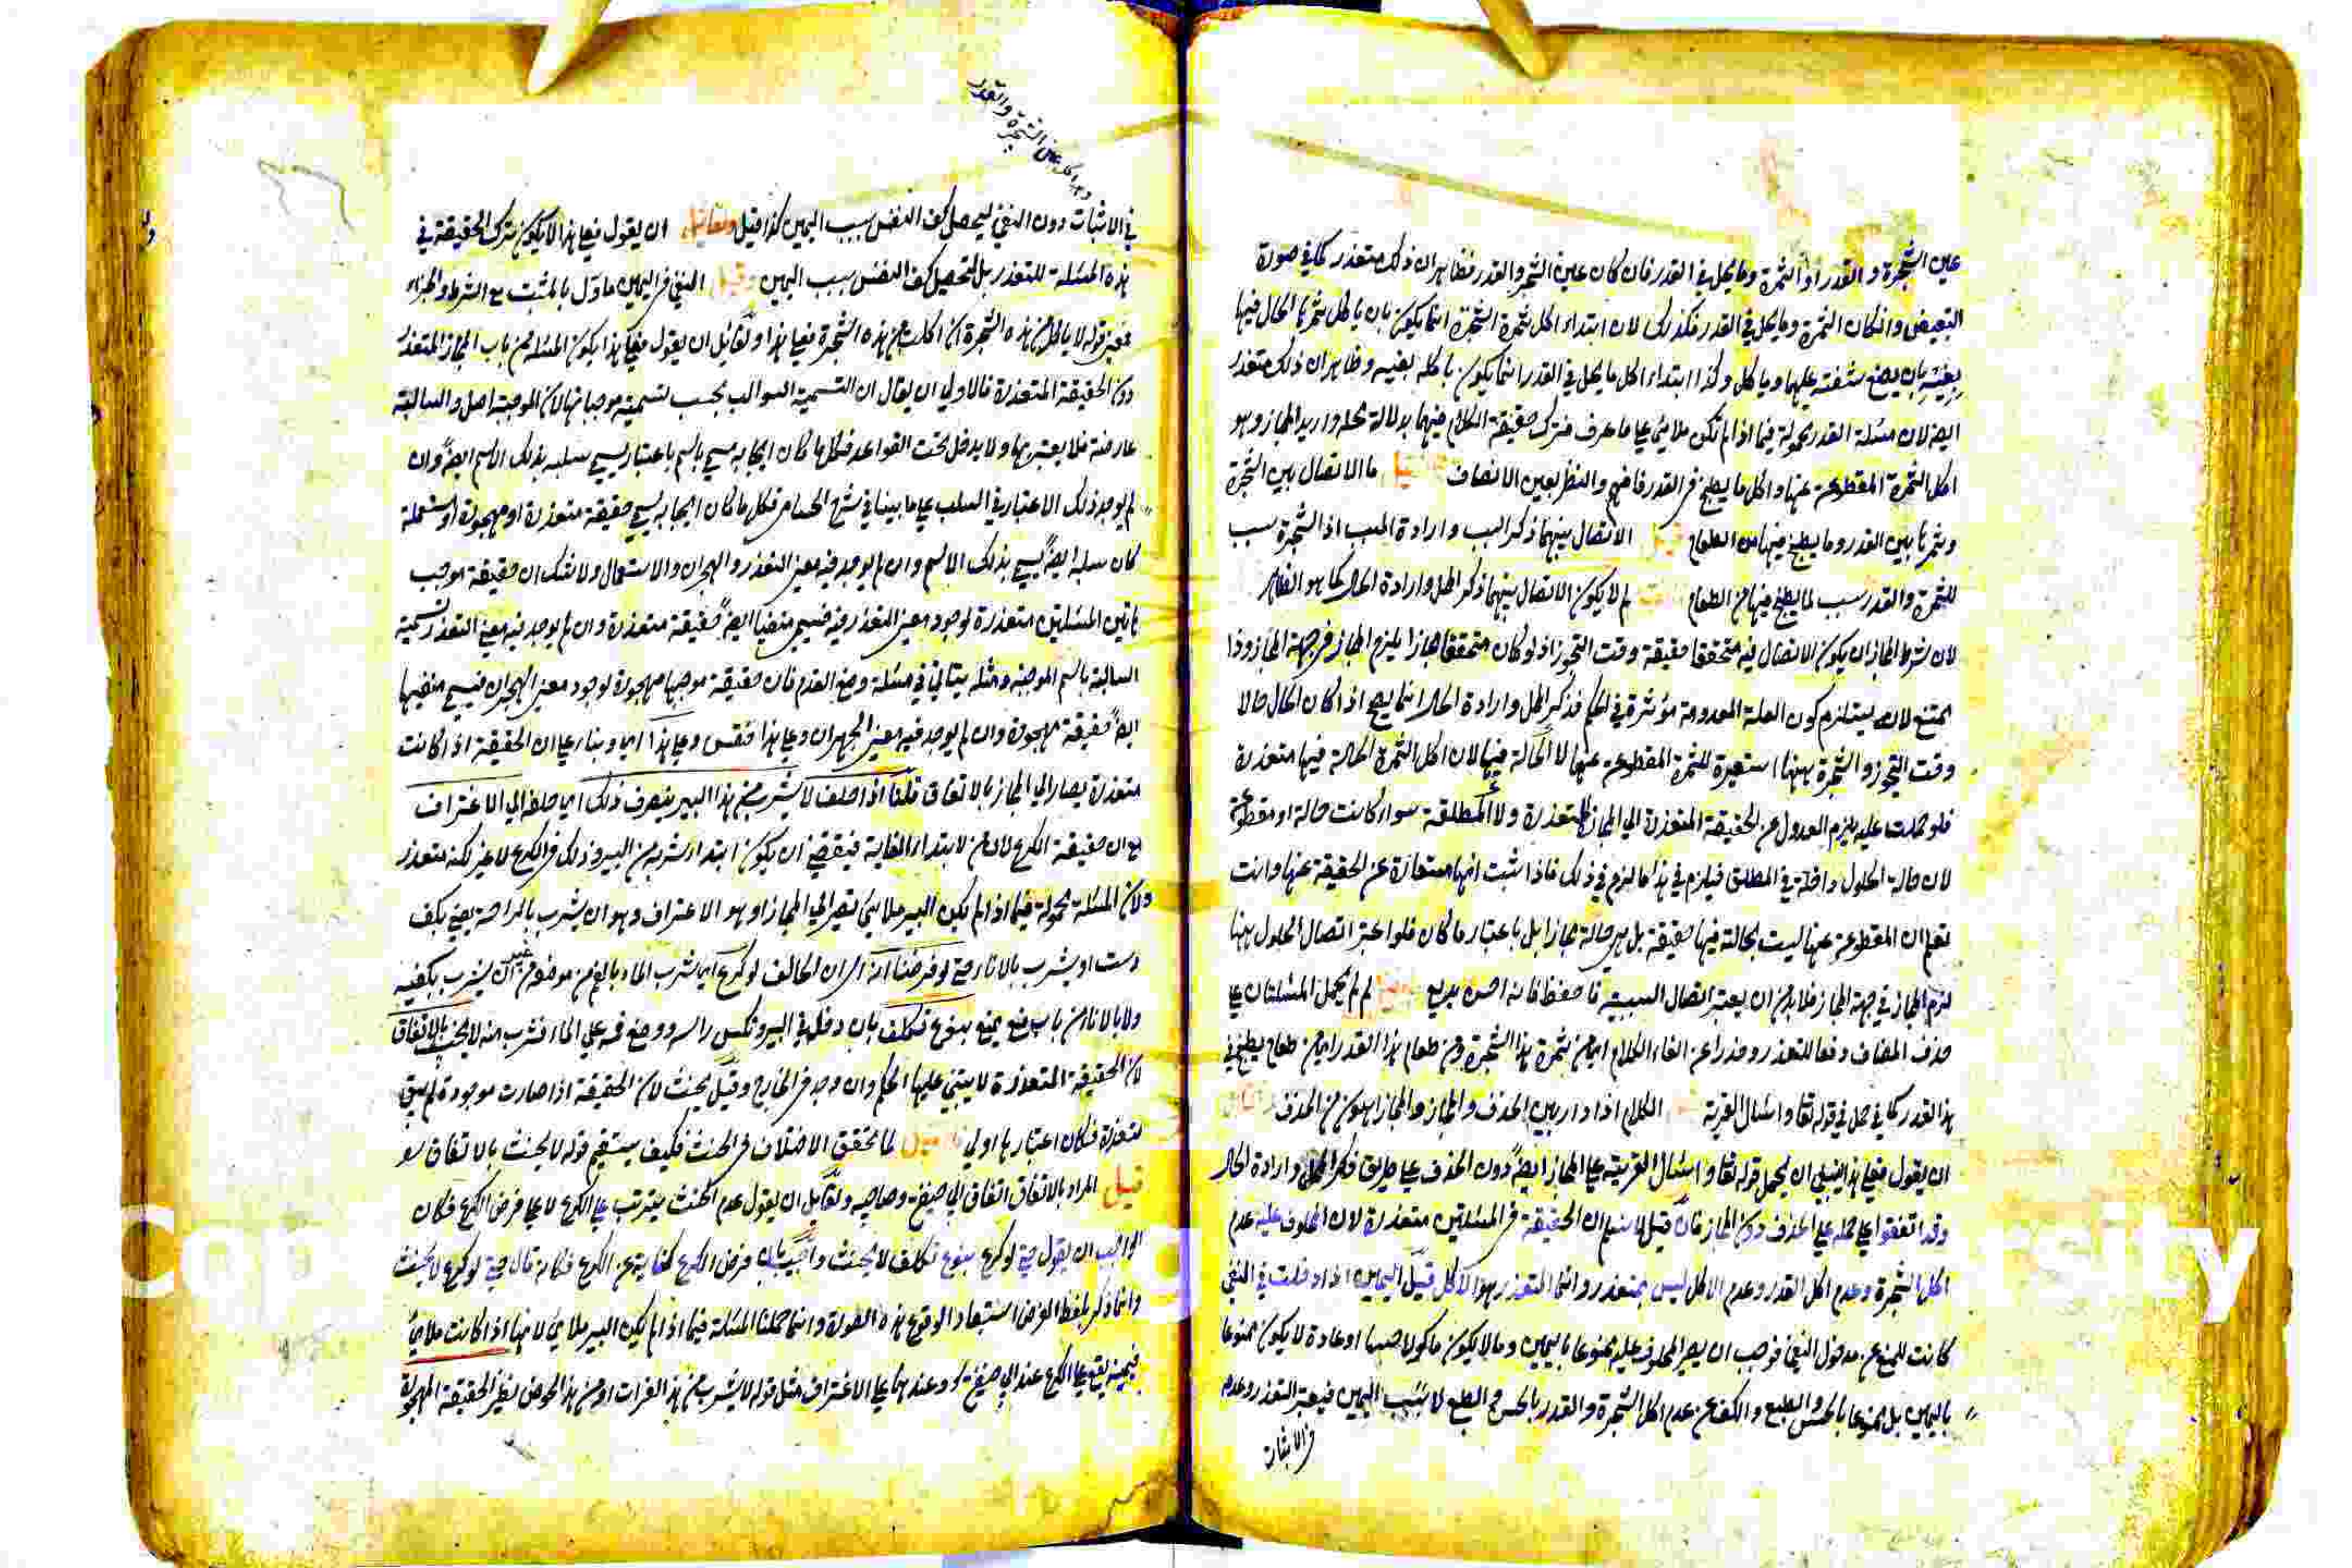 عين الشجرة و القدر او الثمرة وما يحل في القدر فان كان عين الشجر والقدر فظاهر ان ذلك متعذر كما في صورة
التبعيض وان كان الثمرة وما يحل في القدر فكذلك لان ابتداء اكل ثمرة الشجرة انما يكون بان ياكل ثمرتها الحال فيها
بعينه بان يضع شفته عليها وياكل وكذا ابتداء اكل ما يحل في القدر انما يكون باكله بعينه وظاهر ان ذلك متعذر
ايضا لان مسئلة القدر محمولة فيما اذا لم تكن ملائ على ما عرف فترك حقيقة الكلام فيهما بدلالة محله واريد المجاز وهو
اكل الثمرة المقطوعة عنها واكل ما يطبخ في القدر فافهم والنظر بعين الانصاف ما الاتصال بين الشجرة
وثمرتها بين القدر وما يطبخ فيها من الطعام الاتصال بينهما ذكر السبب وارادة المسبب اذ الشجرة سبب
للثمرة والقدر سبب لما يطبخ فيها من الطعام لم لا يكون الاتصال بينهما ذكر المحل وارادة الحال كما هو الظاهر
لان شرط المجاز ان يكون الاتصال فيه متحققا حقيقة وقت التجوز اذ لو كان متحققا مجازا يلزم المجاز في جهة المجاز وذا
يمتنع لانه يستلزم كون العلة المعدومة مؤثرة في الحكم فذكر المحل وارادة الحال انما يصح اذا كان الحال حالا
وقت التجوز والشجرة ههنا استعيرة للثمرة المقطوعة عنها لا الحالة فيها لان اكل الثمرة الحالة فيها متعذرة
فلو حملت عليه يلزم العدول عن الحقيقة المتعذرة الى المجاز المتعذرة ولا المطلقة سواء كانت حالة او مقطوعة
لان حالة الحلول داخلة في المطلق فيلزم في هذا ما لزم في ذلك فاذا ثبت انها مستعارة عن الحقيقة عنها وانت
تعلم ان المقطوعة عنها ليست بحالة فيها حقيقة بل هي حالة مجازا بل باعتبار ما كان فلو اعتبر اتصال الحلول ههنا
لزم المجاز في جهة المجاز فلا بد من ان يعتبر اتصال السببية فاحفظ فانه احسن بديع لم لم يحمل المسئلتان على
حذف المضاف دفعا للتعذر وحذرا عن الغاء الكلام اي من ثمرة هذا الشجرة ومن طعام هذا القدر اي من طعام يطبخ في
هذا القدر كما في حمل في قوله تعا واسئال القرية الكلام اذا دار بين الحذف والمجاز والمجاز اهون من الحذف
ان يقول فعلى هذا ينبغي ان يحمل قوله تعا واسئال القرية على المجاز ايضا دون الحذف على طريق ذكر المحل وارادة الحال
وقد اتفقوا على حمله على الحذف دون المجاز فان قيل لا نسلم ان الحقيقة في المسئلتين متعذرة لان المحلوف عليه عدم
اكل الشجرة وعدم اكل القدر وعدم الاكل ليس بمتعذر وانما المتعذر هو الاكل قيل اليمين اذا دخلت في النفي
كانت للمنع عن مدخول النفي فوجب ان يصير المحلوف عليه ممنوعا باليمين وما لا يكون ماكولا حسا او عادة لا يكون ممنوعا
باليمين بل ممنوعا بالحس والطبع والكف عن عدم اكل الشجرة والقدر بالحس والطبع لا بسبب اليمين فيعتبر التعذر وعدمه
في الاثبات
في الاثبات دون النفي ليحصل كف النفس بسبب اليمين كذا قيل ولقائل ان يقول فعلى هذا لا يكون ترك الحقيقة في
هذه المسئلة للتعذر بل لتحصيل كف النفس بسبب اليمين وقيل النفي في اليمين ماول بالمثبت مع الشرط والجزاء
فمعنى قوله لا ياكل من هذه الشجرة ان اكلت من هذه الشجرة فعلى هذا ولقائل ان يقول فعلى هذا يكون المسئلة من باب المجاز المتعذر
دون الحقيقة المتعذرة فالاولى ان يقال ان التسمية السوالب بحسب تسمية موجباتها لان الموجبة اصل والسالبة
عارضة فلا يعتبر بها ولا يدخل تحت القواعد فكل ما كان ايجابه سمي باسم باعتبار يسمى سلبه بذلك الاسم ايضا وان
لم يوجد ذلك الاعتبار في السلب على ما بينا في شرح الحسامي فكل ما كان ايجابه يسمى حقيقة متعذرة او مهجورة او مستعملة
كان سلبه ايضا يسمى بذلك الاسم وان لم يوجد فيه معنى التعذر والهجران والاستعمال ولا شك ان حقيقة موجب
هاتين المسئلتين متعذرة لوجود معنى التعذر فيه فيسمى منفيها ايضا حقيقة متعذرة وان لم يوجد فيه معنى التعذر تسمية
السالبة باسم الموجبة ومثله يتاتى في مسئلة وضع القدم فان حقيقة موجبها مهجورة لوجود معنى الهجران فيسمى منفيها
ايضا حقيقة مهجورة وان لم يوجد فيه معنى الهجران وعلى هذا فقس وعلى هذا اي وبناء على ان الحقيقة اذا كانت
متعذرة يصار الى المجاز بالاتفاق قلنا اذا حلف لا يشرب من هذا البير ينصرف ذلك اي حلفه الى الاغتراف
مع ان حقيقة الكرع لان من لابتداء الغاية فيقتضي ان يكون ابتداء شربه من البير وذلك في الكرع لا غير لكنه متعذر
ولان المسئلة محمولة فيما اذا لم تكن البير ملائ فيصر الى المجاز وهو الاغتراف وهو ان يشرب بالراحة يعني بكف
دست او يشرب بالاناء حتى لو فرضنا انه اي ان الحالف لو كرع اي شرب الماء بالفم من موضعه من غير ان يشرب بكفيه
ولا بالاناء من باب منع يمنع بنوع تكلف بان دخل في البير ونكس راسه ووضع فمه على الماء فشرب منه لا يحنث بالاتفاق
لان الحقيقة المتعذرة لا يبتني عليها الحكم وان وجد في الخارج وقيل يحنث لان الحقيقة اذا صارت موجودة لم يبق
متعذرة فكان اعتبارها اولى لما تحقق الاختلاف في الحنث فكيف يستقيم قوله لا يحنث بالاتفاق
قيل المراد بالاتفاق اتفاق ابي حنيفة وصاحبيه ولقائل ان يقول عدم الحنث يترتب على الكرع لا على فرض الكرع فكان
الواجب ان يقول حتى لو كرع بنوع تكلف لا يحنث واجيب بان فرض الكرع كناية عن الكرع فكانه قال حتى لو كرع لا يحنث
وانما ذكر بلفظ الفرض استبعادا لوقوع هذه الصورة وانما حملنا المسئلة فيما اذا لم تكن البير ملائ لانها اذا كانت ملائ
فيمينه يقع على الكرع عند ابي حنيفة وعندهما على الاغتراف مثل قوله لا يشرب من هذا الفرات او من هذا الحوض نظير الحقيقة المهجورة